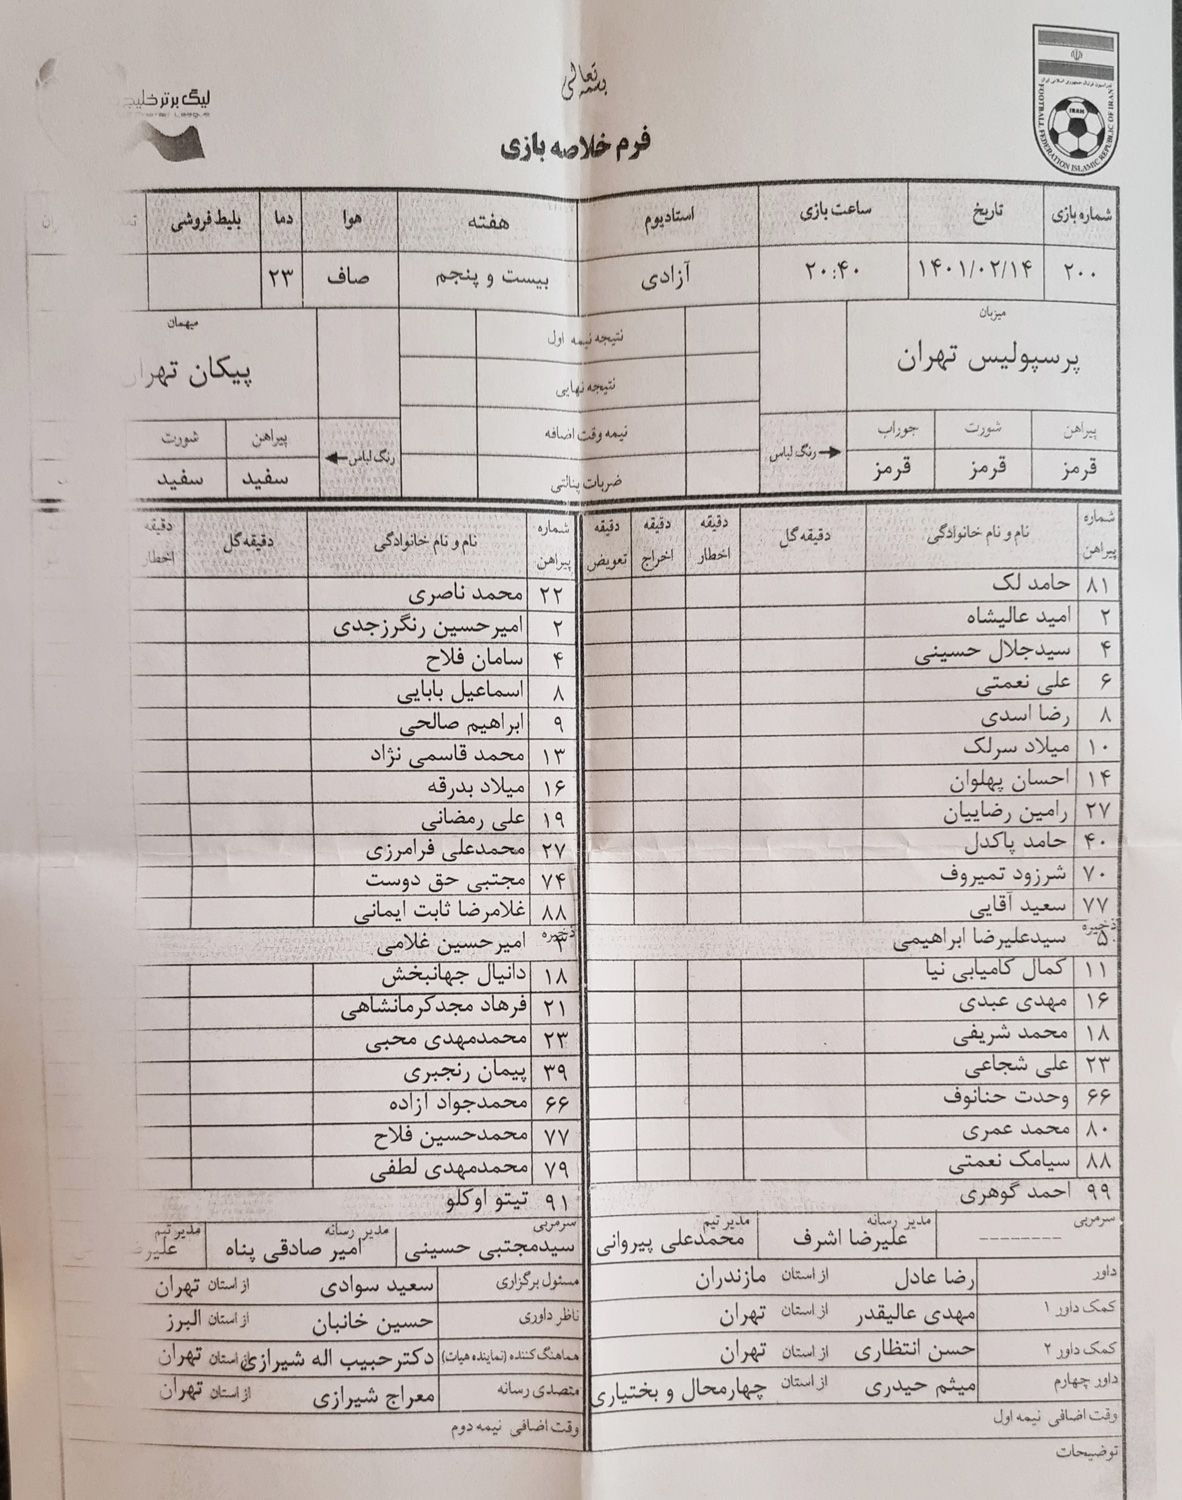 بسمه تعالی
لیگ برتر
فرم خلاصه بازی
FOOTBALL FEDERATION ISLAMIC REPUBLIC OF IRAN
IRAN
شماره بازی تاریخ ساعت بازی استادیوم هفته هوا دما بلیط فروشی
۲۰۰ ۱۴۰۱/۰۲/۱۴ ۲۰:۴۰ آزادی بیست و پنجم صاف ۲۳
میزبان نتیجه نیمه اول میهمان
پرسپولیس تهران نتیجه نهایی پیکان
پیراهن شورت جوراب رنگ لباس نیمه وقت اضافه رنگ لباس پیراهن شورت
قرمز قرمز قرمز ضربات پنالتی سفید سفید
شماره پیراهن نام و نام خانوادگی دقیقه گل دقیقه اخطار دقیقه اخراج دقیقه تعویض شماره پیراهن نام و نام خانوادگی دقیقه گل دقیقه اخطار
۸۱ حامد لک ۲۲ محمد ناصری
۲ امید عالیشاه ۲ امیرحسین رنگرزجدی
۴ سیدجلال حسینی ۴ سامان فلاح
۶ علی نعمتی ۸ اسماعیل بابایی
۸ رضا اسدی ۹ ابراهیم صالحی
۱۰ میلاد سرلک ۱۳ محمد قاسمی نژاد
۱۴ احسان پهلوان ۱۶ میلاد بدرقه
۲۷ رامین رضاییان ۱۹ علی رمضانی
۴۰ حامد پاکدل ۲۷ محمدعلی فرامرزی
۷۰ شرزود تمیروف ۷۴ مجتبی حق دوست
۷۷ سعید آقایی ۸۸ غلامرضا ثابت ایمانی
ذخیره ۵ سیدعلیرضا ابراهیمی ذخیره ۳ امیرحسین غلامی
۱۱ کمال کامیابی نیا ۱۸ دانیال جهانبخش
۱۶ مهدی عبدی ۲۱ فرهاد مجدکرمانشاهی
۱۸ محمد شریفی ۲۳ محمدمهدی محبی
۲۳ علی شجاعی ۳۹ پیمان رنجبری
۶۶ وحدت حنانوف ۶۶ محمدجواد آزاده
۸۰ محمد عمری ۷۷ محمدحسین فلاح
۸۸ سیامک نعمتی ۷۹ محمدمهدی لطفی
۹۹ احمد گوهری ۹۱ تیتو اوکلو
سرمربی -------- مدیر رسانه علیرضا اشرف مدیر تیم محمدعلی پیروانی سرمربی سیدمجتبی حسینی مدیر رسانه امیر صادقی پناه مدیر تیم
داور رضا عادل از استان مازندران مسئول برگزاری سعید سوادی از استان تهران
کمک داور ۱ مهدی عالیقدر از استان تهران ناظر داوری حسین خانبان از استان البرز
کمک داور ۲ حسن انتظاری از استان تهران هماهنگ کننده (نماینده هیات) دکترحبیب اله شیرازی از استان تهران
داور چهارم میثم حیدری از استان چهارمحال و بختیاری متصدی رسانه معراج شیرازی از استان تهران
وقت اضافی نیمه اول وقت اضافی نیمه دوم
توضیحات